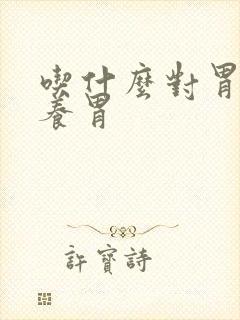 喫什麼對胃
養胃
許寶詩